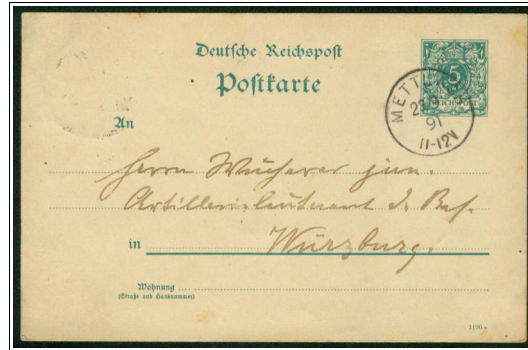 Deutsche Reichspost
Postkarte
5
REICHSPOST
METT
91
11-12V
An
Herrn Wucherer jun.
Artillerieleutnant d. Res.
in Würzburg.
Wohnung
(Straße und Hausnummer)